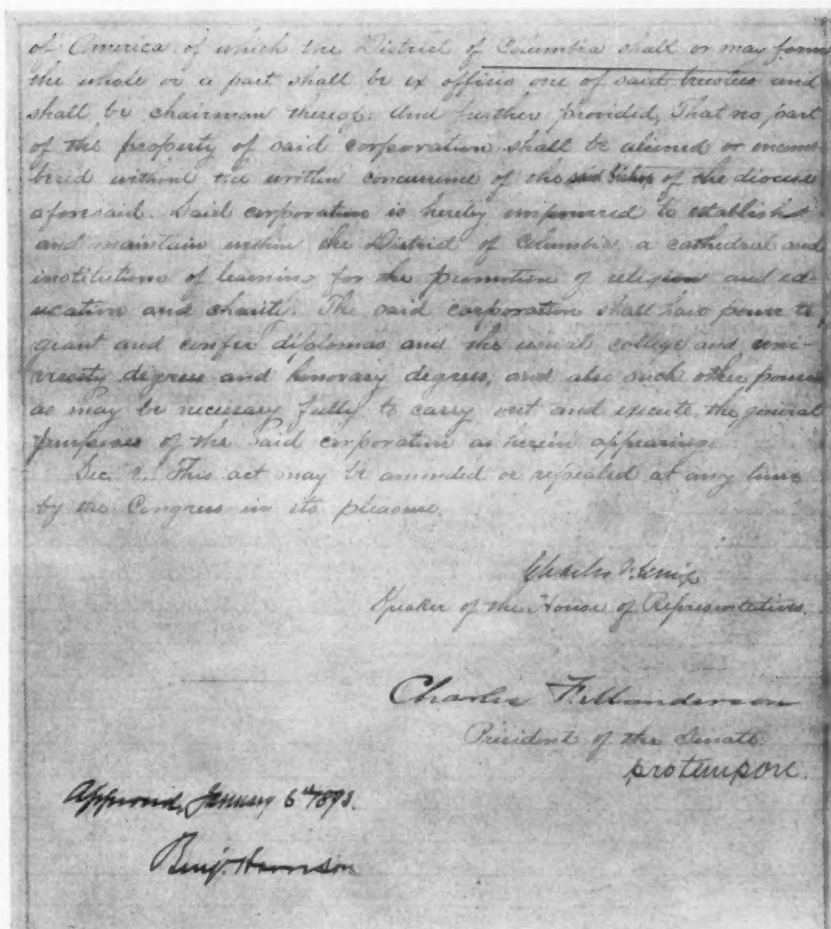 of America of which the District of Columbia shall or may form
the whole or a part shall be ex officio one of said trustees and
shall be chairman thereof: And further provided, That no part
of the property of said corporation shall be aliened or incum-
bered without the written concurrence of the said bishop of the diocese
aforesaid. Said corporation is hereby empowered to establish
and maintain within the District of Columbia a cathedral and
institutions of learning for the promotion of religion and ed-
ucation and charity. The said corporation shall have power to
grant and confer diplomas and the usual college and uni-
versity degrees and honorary degrees, and also such other powers
as may be necessary fully to carry out and execute the general
purposes of the said corporation as herein appearing.
Sec. 2. This act may be amended or repealed at any time
by the Congress in its pleasure.
Charles
Speaker of the House of Representatives.
Charles F. Manderson
President of the Senate
pro tempore.
Approved, January 6th 1893.
Benj. Harrison